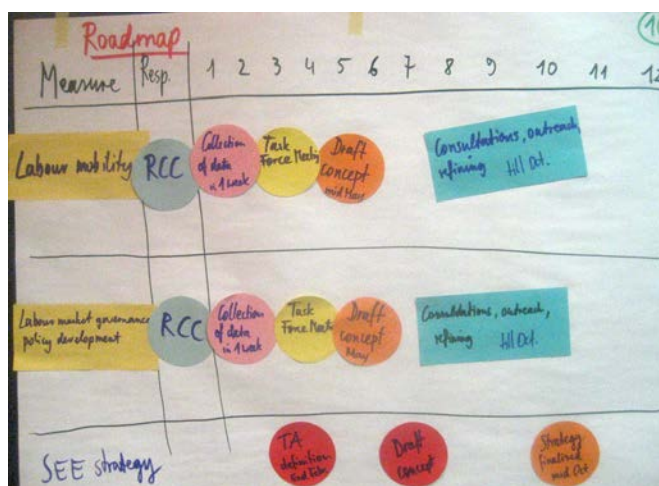 Roadmap
Measure Resp. 1 2 3 4 5 6 7 8 9 10 11 12
Labour mobility
RCC
Collection
of data
in 1 week
Task
Force Meeting
Draft
concept
mid May
Consultations, outreach,
refining till Oct.
Labour market governance
policy development
RCC
Collection
of data
in 1 week
Task
Force Meeting
Draft
concept
May
Consultations, outreach,
refining till Oct.
SEE strategy
TA
definition
End Febr
Draft
concept
Strategy
finalised
mid Oct